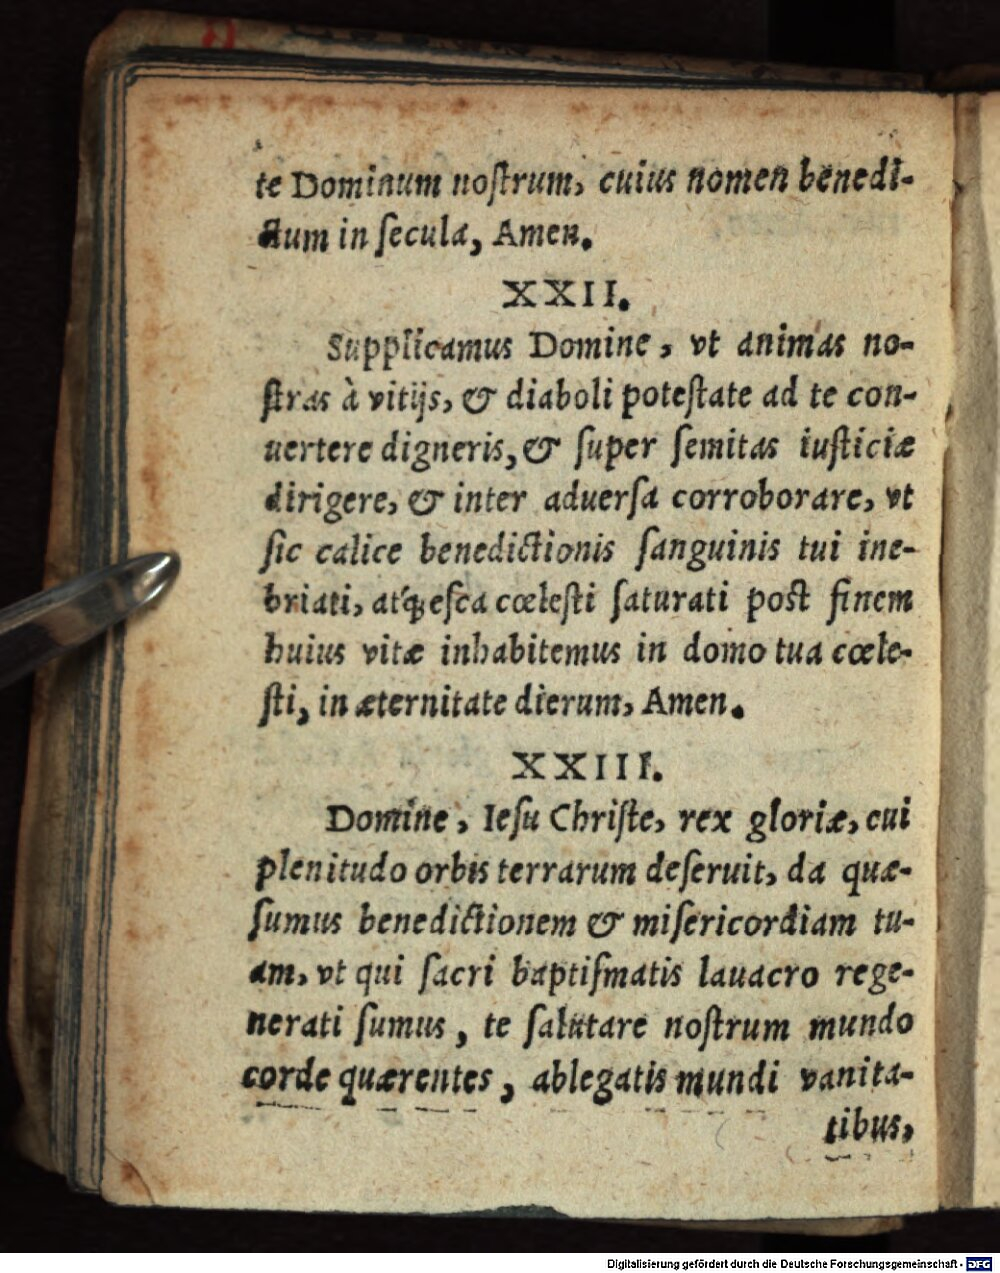 te Dominum noſtrum, cuius nomen benedi-
ctum in ſecula, Amen.
XXII.
Supplicamus Domine, vt animas no-
ſtras à vitijs, & diaboli poteſtate ad te con-
uertere digneris, & ſuper ſemitas iuſticiæ
dirigere, & inter aduerſa corroborare, vt
ſic calice benedictionis ſanguinis tui ine-
briati, atq́; eſca cœleſti ſaturati poſt finem
huius vitæ inhabitemus in domo tua cœle-
ſti, in æternitate dierum, Amen.
XXIII.
Domine, Ieſu Chriſte, rex gloriæ, cui
plenitudo orbis terrarum deſeruit, da quæ-
ſumus benedictionem & miſericordiam tu-
am, vt qui ſacri baptiſmatis lauacro rege-
nerati ſumus, te ſalutare noſtrum mundo
corde quærentes, ablegatis mundi vanita-
tibus,
Digitalisierung gefördert durch die Deutsche Forschungsgemeinschaft - DFG